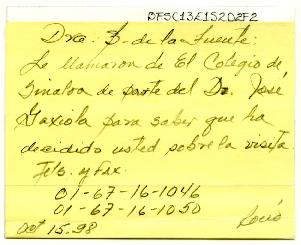 BFSC13E1S2D2F2
Dra. B. de la Fuente:
Le llamaron de El Colegio de
Sinaloa de parte del Dr. José
Gaxiola para saber que ha
decidido usted sobre la visita
Tels. y Fax.
01-67-16-1046
01-67-16-1050
Rocío
oct 15.98